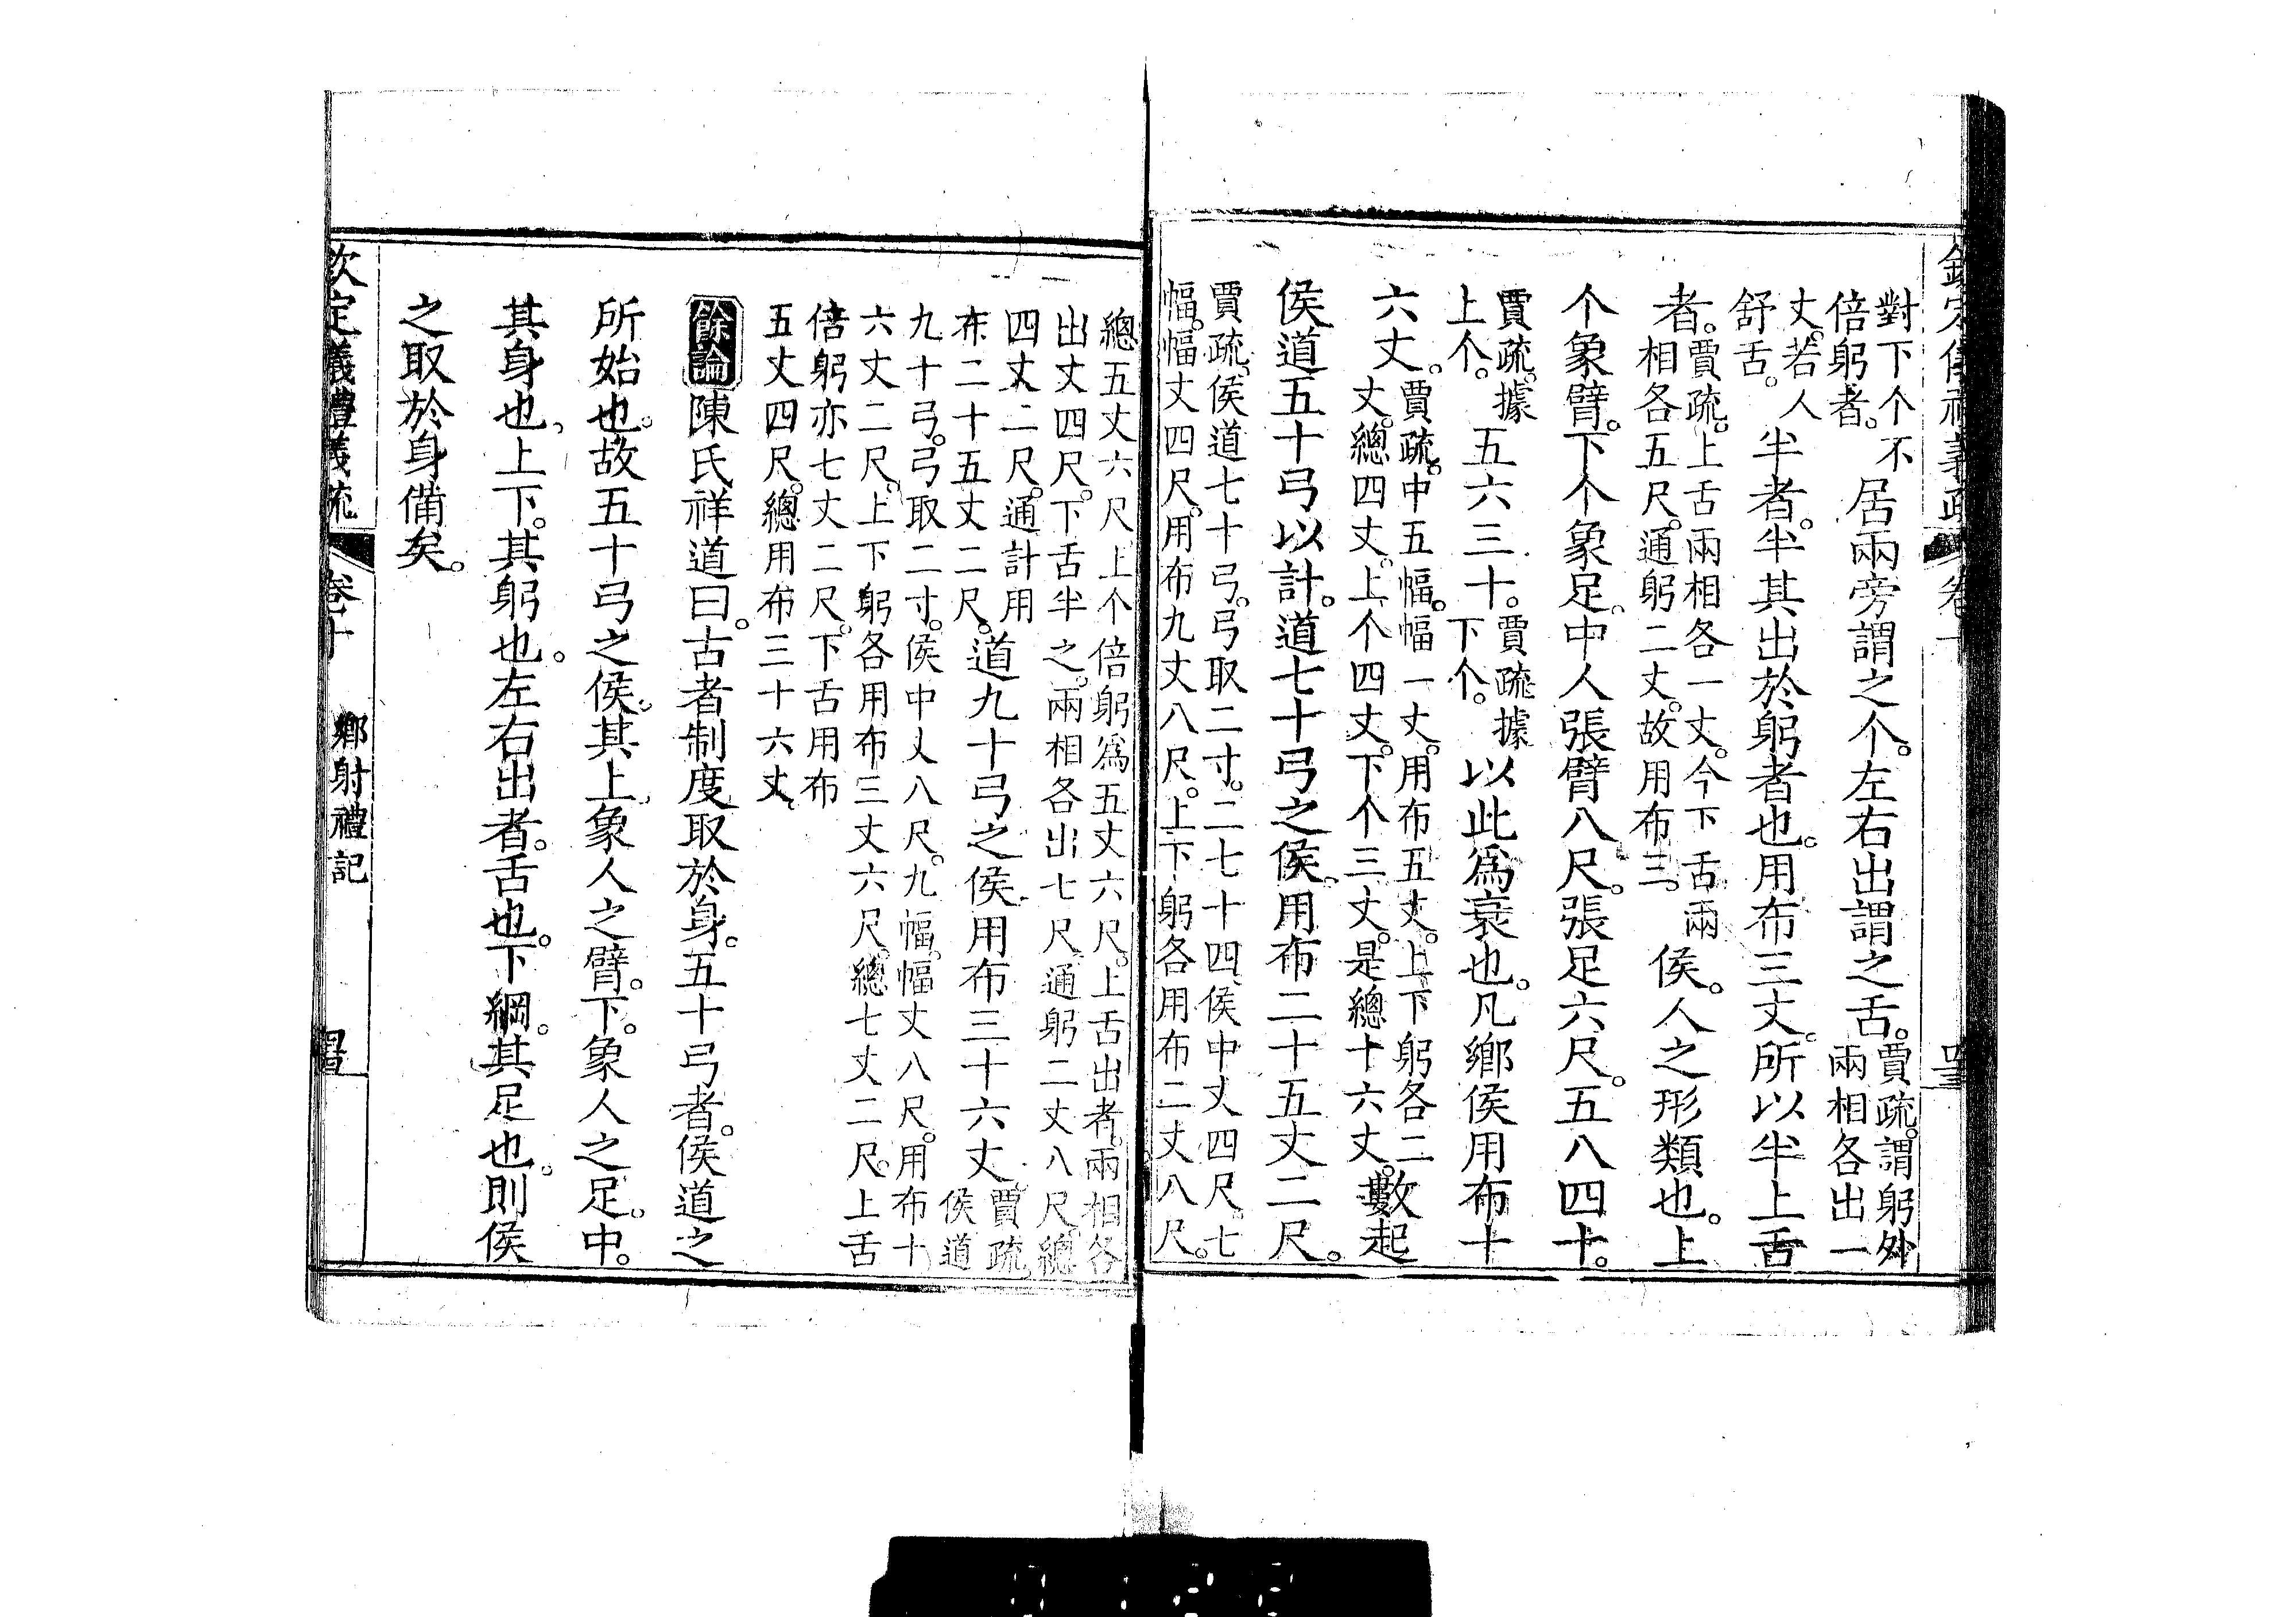 對下个不倍躬者。居兩旁謂之个。左右出謂之舌。賈疏。謂躬外兩相各出一
丈。若人舒舌。半者。半其出於躬者也。用布三丈。所以半上舌
者。賈疏。上舌兩相各一丈。今下舌兩相各五尺。通躬二丈。故用布三。侯。人之形類也。上
个象臂。下个象足。中人張臂八尺。張足六尺。五八四十。
賈疏。據上个。五六三十。賈疏。據下个。以此爲衰也。凡鄉侯用布十
六丈。賈疏。中五幅。幅一丈。用布五丈。上下躬各二丈。總四丈。上个四丈。下个三丈。是總十六丈。數起
侯道五十弓以計。道七十弓之侯。用布二十五丈二尺。
賈疏。侯道七十弓。弓取二寸。二七十四。侯中丈四尺。七
幅。幅丈四尺。用布九丈八尺。上下躬各用布二丈八尺。
總五丈六尺。上个倍躬爲五丈六尺。上舌出者。兩相各
出丈四尺。下舌半之。兩相各出七尺。通躬二丈八尺。總
四丈二尺。通計用布二十五丈二尺。道九十弓之侯。用布三十六丈。賈疏。侯道
九十弓。弓取二寸。侯中丈八尺。九幅。幅丈八尺。用布十
六丈二尺。上下躬各用布三丈六尺。總七丈二尺。上舌
倍躬亦七丈二尺。下舌用布
五丈四尺。總用布三十六丈。
餘論 陳氏祥道曰。古者制度取於身。五十弓者。侯道之
所始也。故五十弓之侯。其上象人之臂。下。象人之足。中。
其身也。上下。其躬也。左右出者。舌也。下綱。其足也。則侯
之取於身備矣。
欽定儀禮義疏 卷十 鄉射禮記